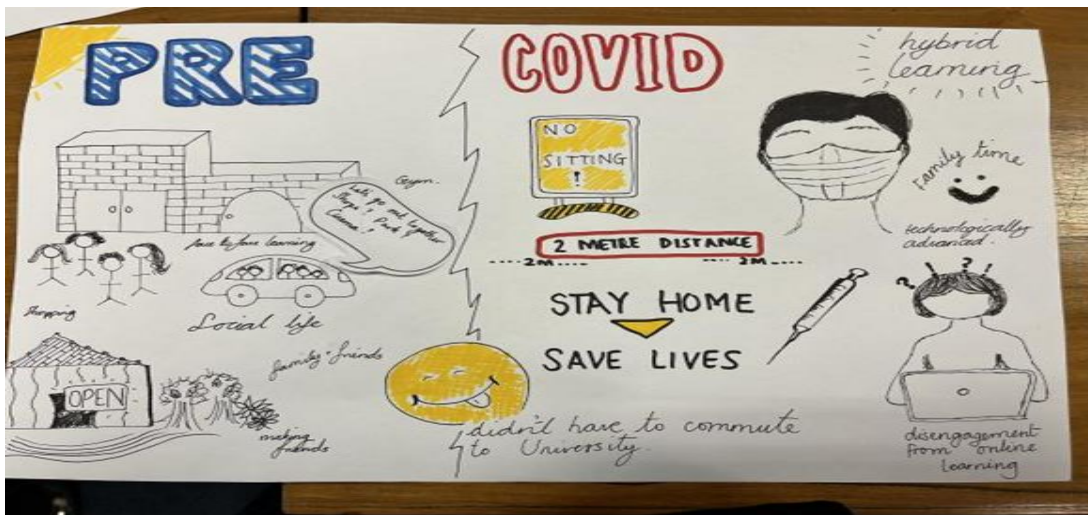 PRE
Gym.
Let's go out together
Shops? Park?
Cinema?
face to face learning
shopping
Social life
family + friends
OPEN
making
friends
COVID
NO
SITTING
!
2 METRE DISTANCE
2M
2M
STAY HOME
SAVE LIVES
didn't have to commute
to University.
hybrid
learning
Family time
technologically
advanced.
? ! ?
disengagement
from online
learning